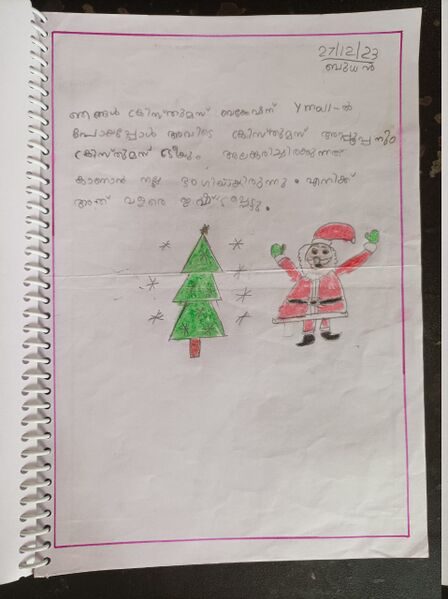 27/12/23
ബുധൻ
ഞങ്ങൾ ക്രിസ്തുമസ് വെക്കേഷന് Y mall-ൽ
പോയപ്പോൾ അവിടെ ക്രിസ്തുമസ് അപ്പൂപ്പനും
ക്രിസ്തുമസ് ട്രീയും അലങ്കരിച്ചിരിക്കുന്നത്
കാണാൻ നല്ല ഭംഗിയായിരുന്നു. എനിക്ക്
അത് വളരെ ഇഷ്ട്ടപ്പെട്ടു.